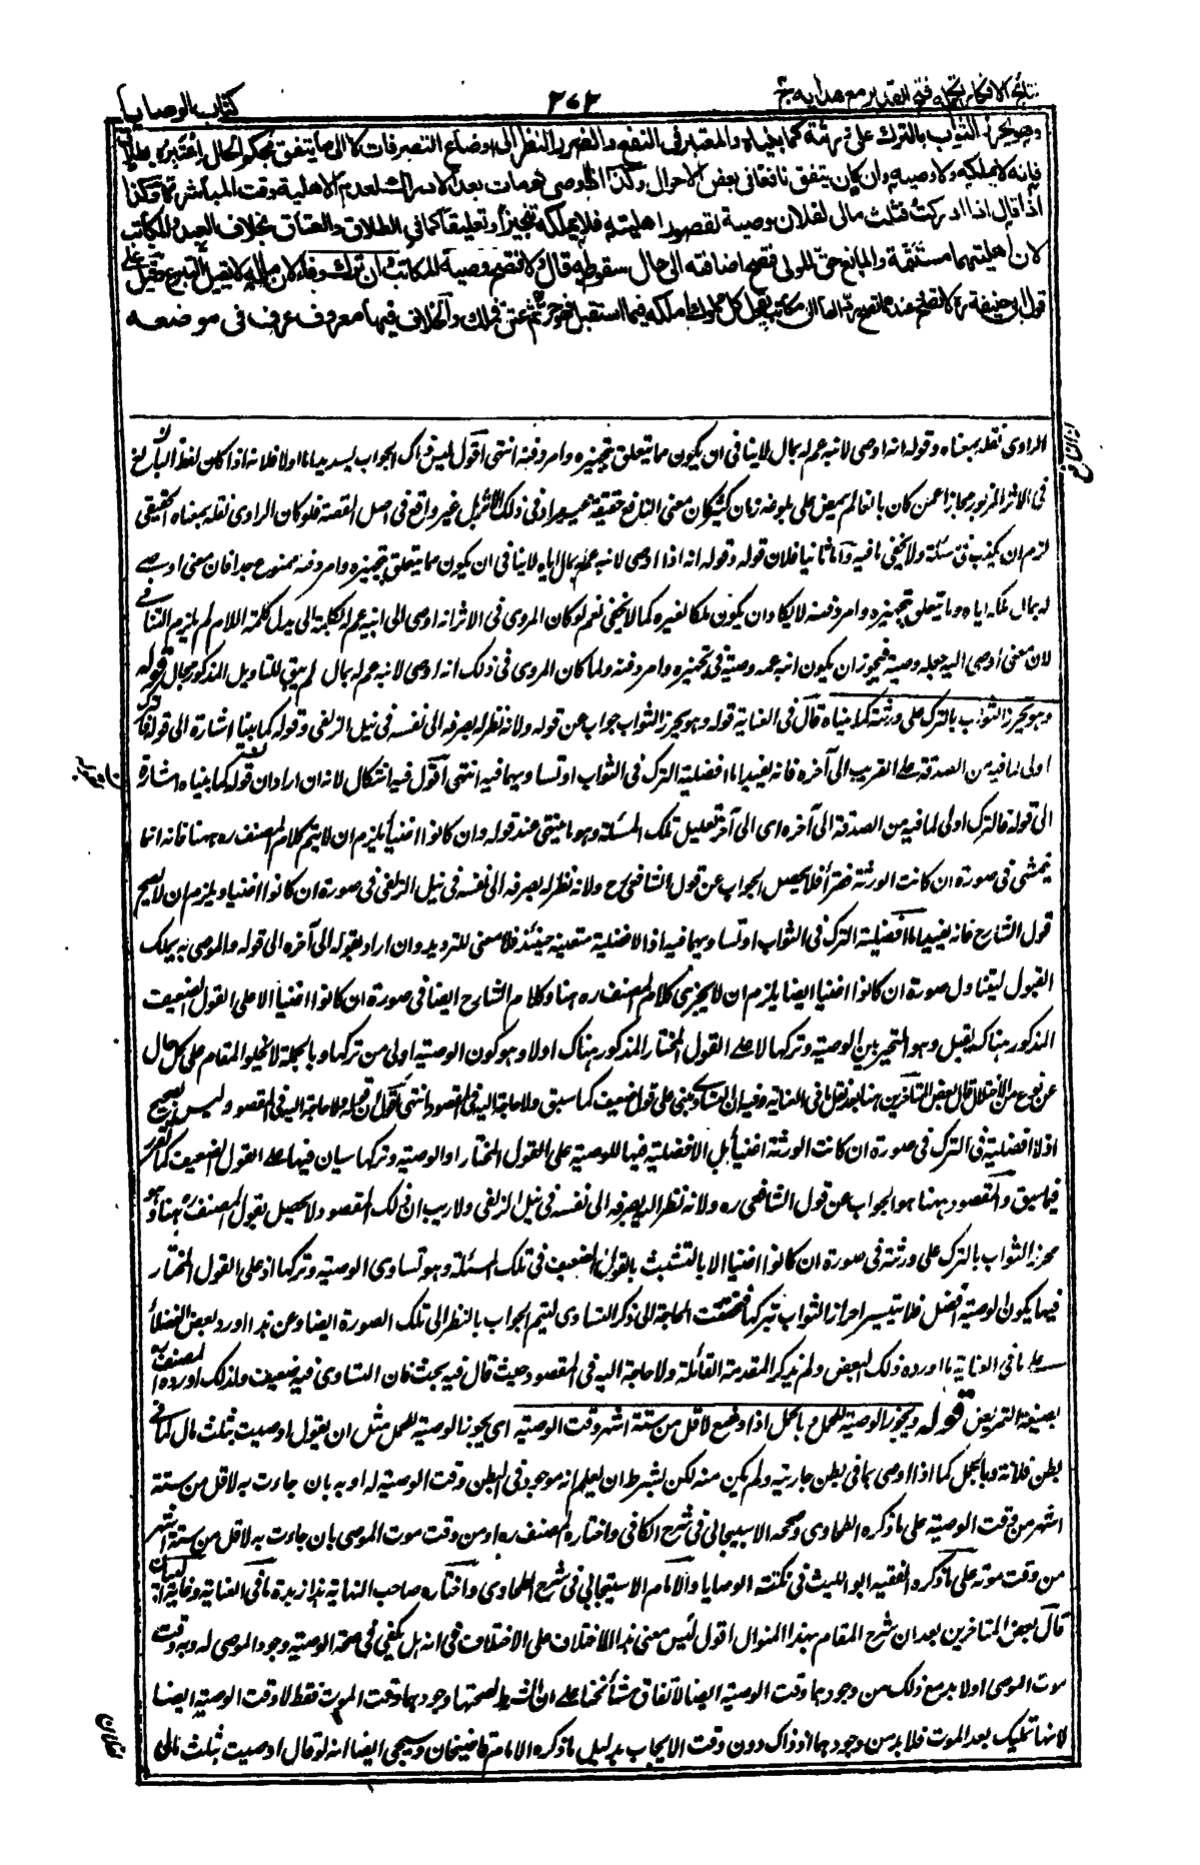 نتائج الافكار تكملة فتح القدير مع هداية ج
٢٧٢
كتاب الوصايا
وهو يحرز الثواب بالترك على ورثته كما بيناه والمعتبر فى النفع والضرر النظر الى اوضاع التصرفات لا الى ما يتفق بحكم الحال اعتبره بالطلاق
فانه لا يملكه ولا وصيه وان كان يتفق نافعا فى بعض الاحوال وكذا اذا اوصى ثم مات بعد الادراك لعدم الاهلية وقت المباشرة وكذا
اذا قال اذا ادركت فثلث مالى لفلان وصية لقصور اهليته فلا يملكه تنجيزا وتعليقا كما فى الطلاق والعتاق بخلاف العبد والمكاتب
لان اهليتهما مستتمة والمانع حق المولى فتصح اضافته الى حال سقوطه قال ولا تصح وصية المكاتب وان ترك وفاء لان ماله لا يقبل التبرع وقيل على
قول ابى حنيفة ره لا تصح وعندهما تصح ردا لها الى مكاتب يقول كل مملوك املكه فيما استقبل فهو حر ثم عتق فملك والخلاف فيها معروف عرف فى موضعه
الراوى نقله بمعناه وقوله انه اوصى لابنة عم له بمال لا ينافى ان يكون مما يتعلق بتجهيزه وامر دفنه انتهى اقول ليس ذاك الجواب بسديد اما اولا فلانه اذا كان لفظ اليافع
فى الاثر المزبور مجازا عمن كان بالغا لم يمض على بلوغه زمان كثير كان معنى اليافع حقيقة غير مراد فى ذلك الاثر بل غير واقع فى اصل القصة فلو كان الراوى نقله بمعناه الحقيقى
لزم ان يكذب فى نقله ولا يخفى ما فيه واما ثانيا فلان قوله وقوله انه اذا اوصى لابنة عم له بمال اياه لا ينافى ان يكون مما يتعلق بتجهيزه وامر دفنه ممنوع جدا فان معنى اوصى
له بمال ملكه اياه وما يتعلق بتجهيزه وامر دفنه لا يكاد ان يكون ملكا لغيره كما لا يخفى نعم لو كان المروى فى الاثر انه اوصى الى ابنة عم له بكلمة الى بدل كلمة اللام لم يلزم التنافى
لان معنى اوصى اليه جعله وصيه فيجوز ان يكون ابنة عمه وصية فى تجهيزه وامر دفنه ولما كان المروى فى ذلك انه اوصى لابنة عم له بمال لم يبق للتاويل المذكور مجال قوله
وهو يحرز الثواب بالترك على ورثته كما بيناه قال فى العناية قوله وهو يحرز الثواب جواب عن قوله ولانه نظر له بصرفه الى نفسه فى نيل الزلفى وقوله كما بينا اشارة الى قوله فالترك
اولى لما فيه من الصدقة على القريب الى آخره فانه يفيد اما افضلية الترك فى الثواب او تساويهما فيه انتهى اقول فيه اشكال لانه ان اراد ان قوله كما بيناه اشارة
الى قوله فالترك اولى لما فيه من الصدقة الى آخره اى الى آخر تعليل تلك المسئلة وهو ما ينتهى عند قوله وان كانوا اغنياء يلزم ان لا يتم كلام المصنف ره ههنا فانه انما
يتمشى فى صورة ان كانت الورثة فقراء فلا يحصل الجواب عن قول الشافعى رح ولانه نظر له بصرفه الى نفسه فى نيل الزلفى فى صورة ان كانوا اغنياء ويلزم ان لا يصح
قول الشارح فانه يفيد اما افضلية الترك فى الثواب او تساويهما فيه اذ الافضلية متعينة حينئذ فلا معنى للترديد وان اراد بقوله الى آخره الى قوله والموصى به يملك
القبول ليتناول صورة ان كانوا اغنياء ايضا يلزم ان لا يجزى كلام المصنف ره هنا وكلام الشارح ايضا فى صورة ان كانوا اغنياء الا على القول الضعيف
المذكور هناك بقيل وهو التخيير بين الوصية وتركها لا على القول المختار المذكور هناك اولا وهو كون الوصية اولى من تركها وبالجملة لا يخلو المقام على كل حال
عن نوع من الاختلال قال بعض المتاخرين ههنا بعد نقل ما فى العناية وفيه ان التساوى مبنى على قول ضعيف كما سبق ولا حاجة اليه فى المقصود انتهى اقول ان قوله ولا حاجة اليه فى المقصود ليس بصحيح
اذ لا افضلية فى الترك فى صورة ان كانت الورثة اغنياء بل الافضلية فيها للوصية على القول المختار او الوصية وتركها سيان فيها على القول الضعيف كما تقرر
فيما سبق والمقصود ههنا هو الجواب عن قول الشافعى ره ولانه نظر له بصرفه الى نفسه فى نيل الزلفى ولا ريب ان ذلك المقصود لا يحصل بقول المصنف ره هنا وهو
محرز الثواب بالترك على ورثته فى صورة ان كانوا اغنياء الا بالتشبث بالقول الضعيف فى تلك المسئلة وهو تساوى الوصية وتركها اذ على القول المختار
فيها يكون الوصية افضل فلا يتيسر احراز الثواب بتركها فتحققت الحاجة الى ذكر التساوى ليتم الجواب بالنظر الى تلك الصورة ايضا وعن هذا اورد بعض الفضلاء
على ما فى العناية ما اورده ذلك البعض ولم يذكر المقدمة القائلة ولا حاجة اليه فى المقصود حيث قال فيه بحث فان التساوى فيه ضعيف ولذلك اورده المصنف
بصيغة التمريض قوله ويجوز الوصية للحمل وبالحمل اذا وضع لاقل من ستة اشهر وقت الوصية اى يجوز الوصية للحمل مثل ان يقول اوصيت بثلث مالى لما فى
بطن فلانة وبالحمل كما اذا اوصى بما فى بطن جاريته ولم يكن منه لكن بشرط ان يعلم انه موجود فى البطن وقت الوصية له او به بان جاءت به لاقل من ستة
اشهر من وقت الوصية على ما ذكره الطحاوى وصححه الاسبيجابى فى شرح الكافى واختاره المصنف ره او من وقت موت الموصى بان جاءت به لاقل من ستة اشهر
من وقت موته على ما ذكره الفقيه ابو الليث فى نكتة الوصايا والامام الاسبيجابى فى شرح الطحاوى واختاره صاحب النهاية هذا زبدة ما فى العناية وغاية البيان
قال بعض المتاخرين بعد ان شرح المقام بهذا المنوال اقول ليس معنى هذا الاختلاف على الاختلاف فى انه هل يكفى فى صحة الوصية وجود الموصى له وبه وقت
موت الموصى او لا بد مع ذلك من وجودهما وقت الوصية ايضا لاتفاق مشائخنا على ان الشرط لصحتها وجودهما وقت الموت فقط لا وقت الوصية ايضا
لانها تمليك بعد الموت فلا بد من وجودهما اذ ذاك دون وقت الايجاب بدليل ما ذكره الامام قاضيخان وسيجئ ايضا انه لو قال اوصيت بثلث مالى